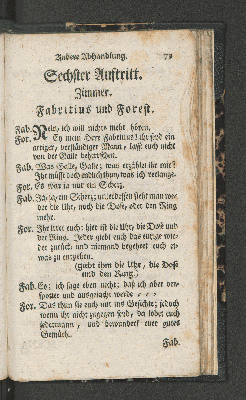 Andere Abhandlung. 79
Sechster Auftritt.
Zimmer.
Fabritius und Forest.
Fab. Nein, ich will nichts mehr hören.
For. Ey mein Herr Fabritius! ihr seyd ein
artiger, verständiger Mann, laßt euch nicht
von der Galle beherrschen.
Fab. Was Galle, Galle; was erzählet ihr mir?
Ihr müßt doch endlich thun, was ich verlange.
For. Es war ja nur ein Scherz.
Fab. Ja, ja, ein Scherz; unterdessen sieht man we-
der die Uhr, noch die Dose, oder den Ring
mehr.
For. Ihr irret euch: hier ist die Uhr die Dose und
der Ring. Jeder giebt euch das eurige wie-
der zurück, und niemand begehret euch et-
was zu entziehen.
(giebt ihm die Uhr, die Dose
und den Ring.)
Fab. Ey; ich sage eben nicht; daß ich aber ver-
spottet und ausgelacht werde - - -
For. Das thun sie euch nur ins Gesicht; jedoch
wenn ihr nicht zugegen seyd, da lobet euch
jedermann, und bewundert euer gutes
Gemüth.
Fab.